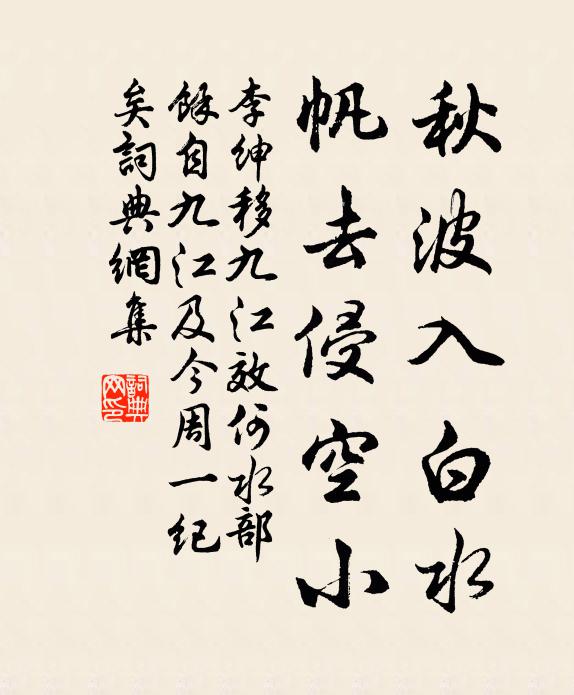 秋波入白水
帆去侵空小
李紳移九江效何水部
餘自九江及今周一紀
矣詞典網集
詞典
网印